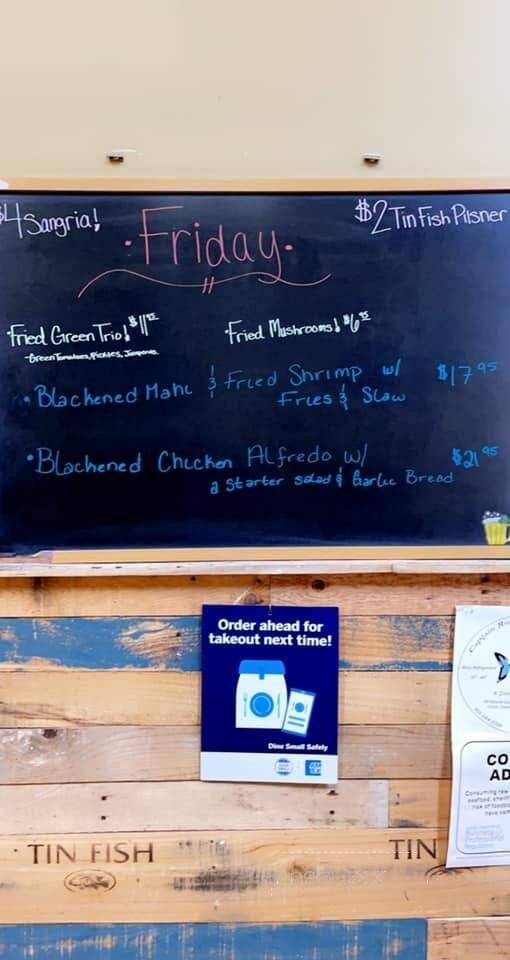 $4 Sangria!
$2 Tin Fish Pilsner
· Friday ·
Fried Green Trio! $11.95
Green Tomatoes, Pickles, Jalapenos
Fried Mushrooms! $6.95
· Blackened Mahi & Fried Shrimp w/ $17.95
Fries & Slaw
· Blackened Chicken Alfredo w/ $21.95
a Starter salad & Garlic Bread
Order ahead for
takeout next time!
Dine Small Safely
CO
AD
Consuming raw
seafood, shellf
risk of foodbo
have cert
TIN FISH
TIN